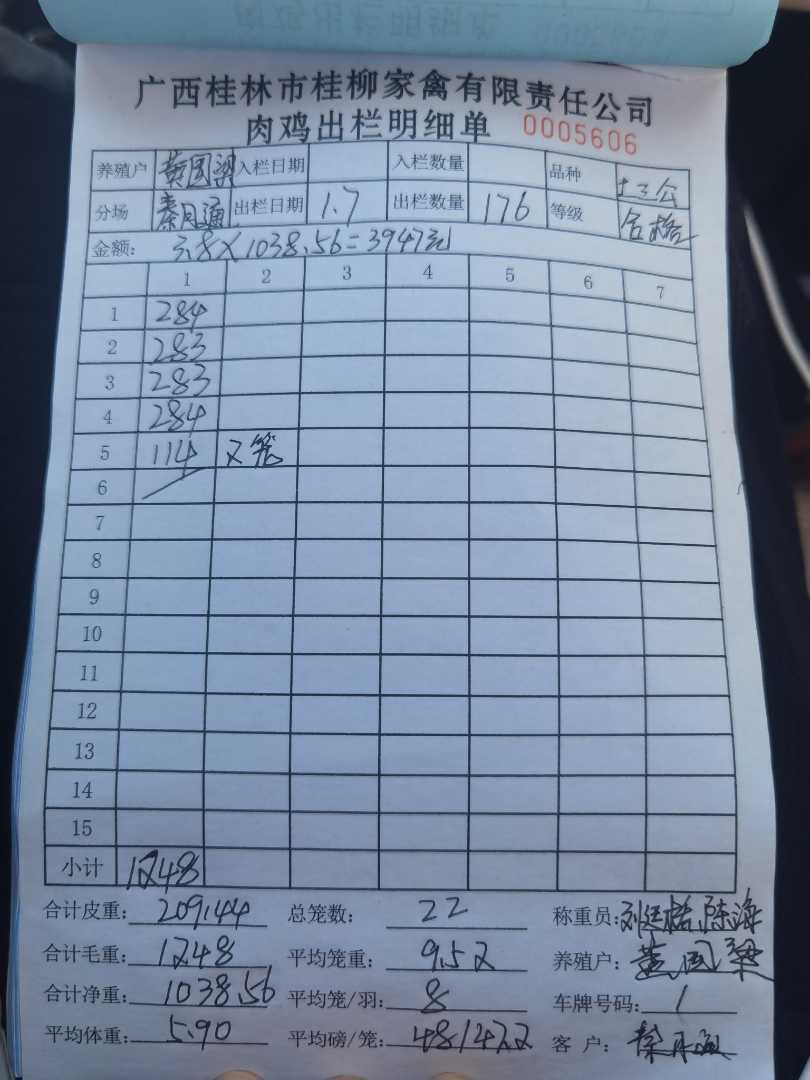 广西桂林市桂柳家禽有限责任公司
肉鸡出栏明细单 0005606
养殖户 黄国梁 入栏日期 入栏数量 品种 土三公
分场 秦月通 出栏日期 1.7 出栏数量 176 等级 合格
金额: 3.8×1038.56=3947元
1 2 3 4 5 6 7
1 284
2 283
3 283
4 284
5 114 2笼
6
7
8
9
10
11
12
13
14
15
小计 1248
合计皮重: 209.44 总笼数: 22 称重员: 陈海
合计毛重: 1248 平均笼重: 9.52 养殖户: 黄国梁
合计净重: 1038.56 平均笼/羽: 8 车牌号码: 1
平均体重: 5.90 平均磅/笼: 48/47.2 客户: